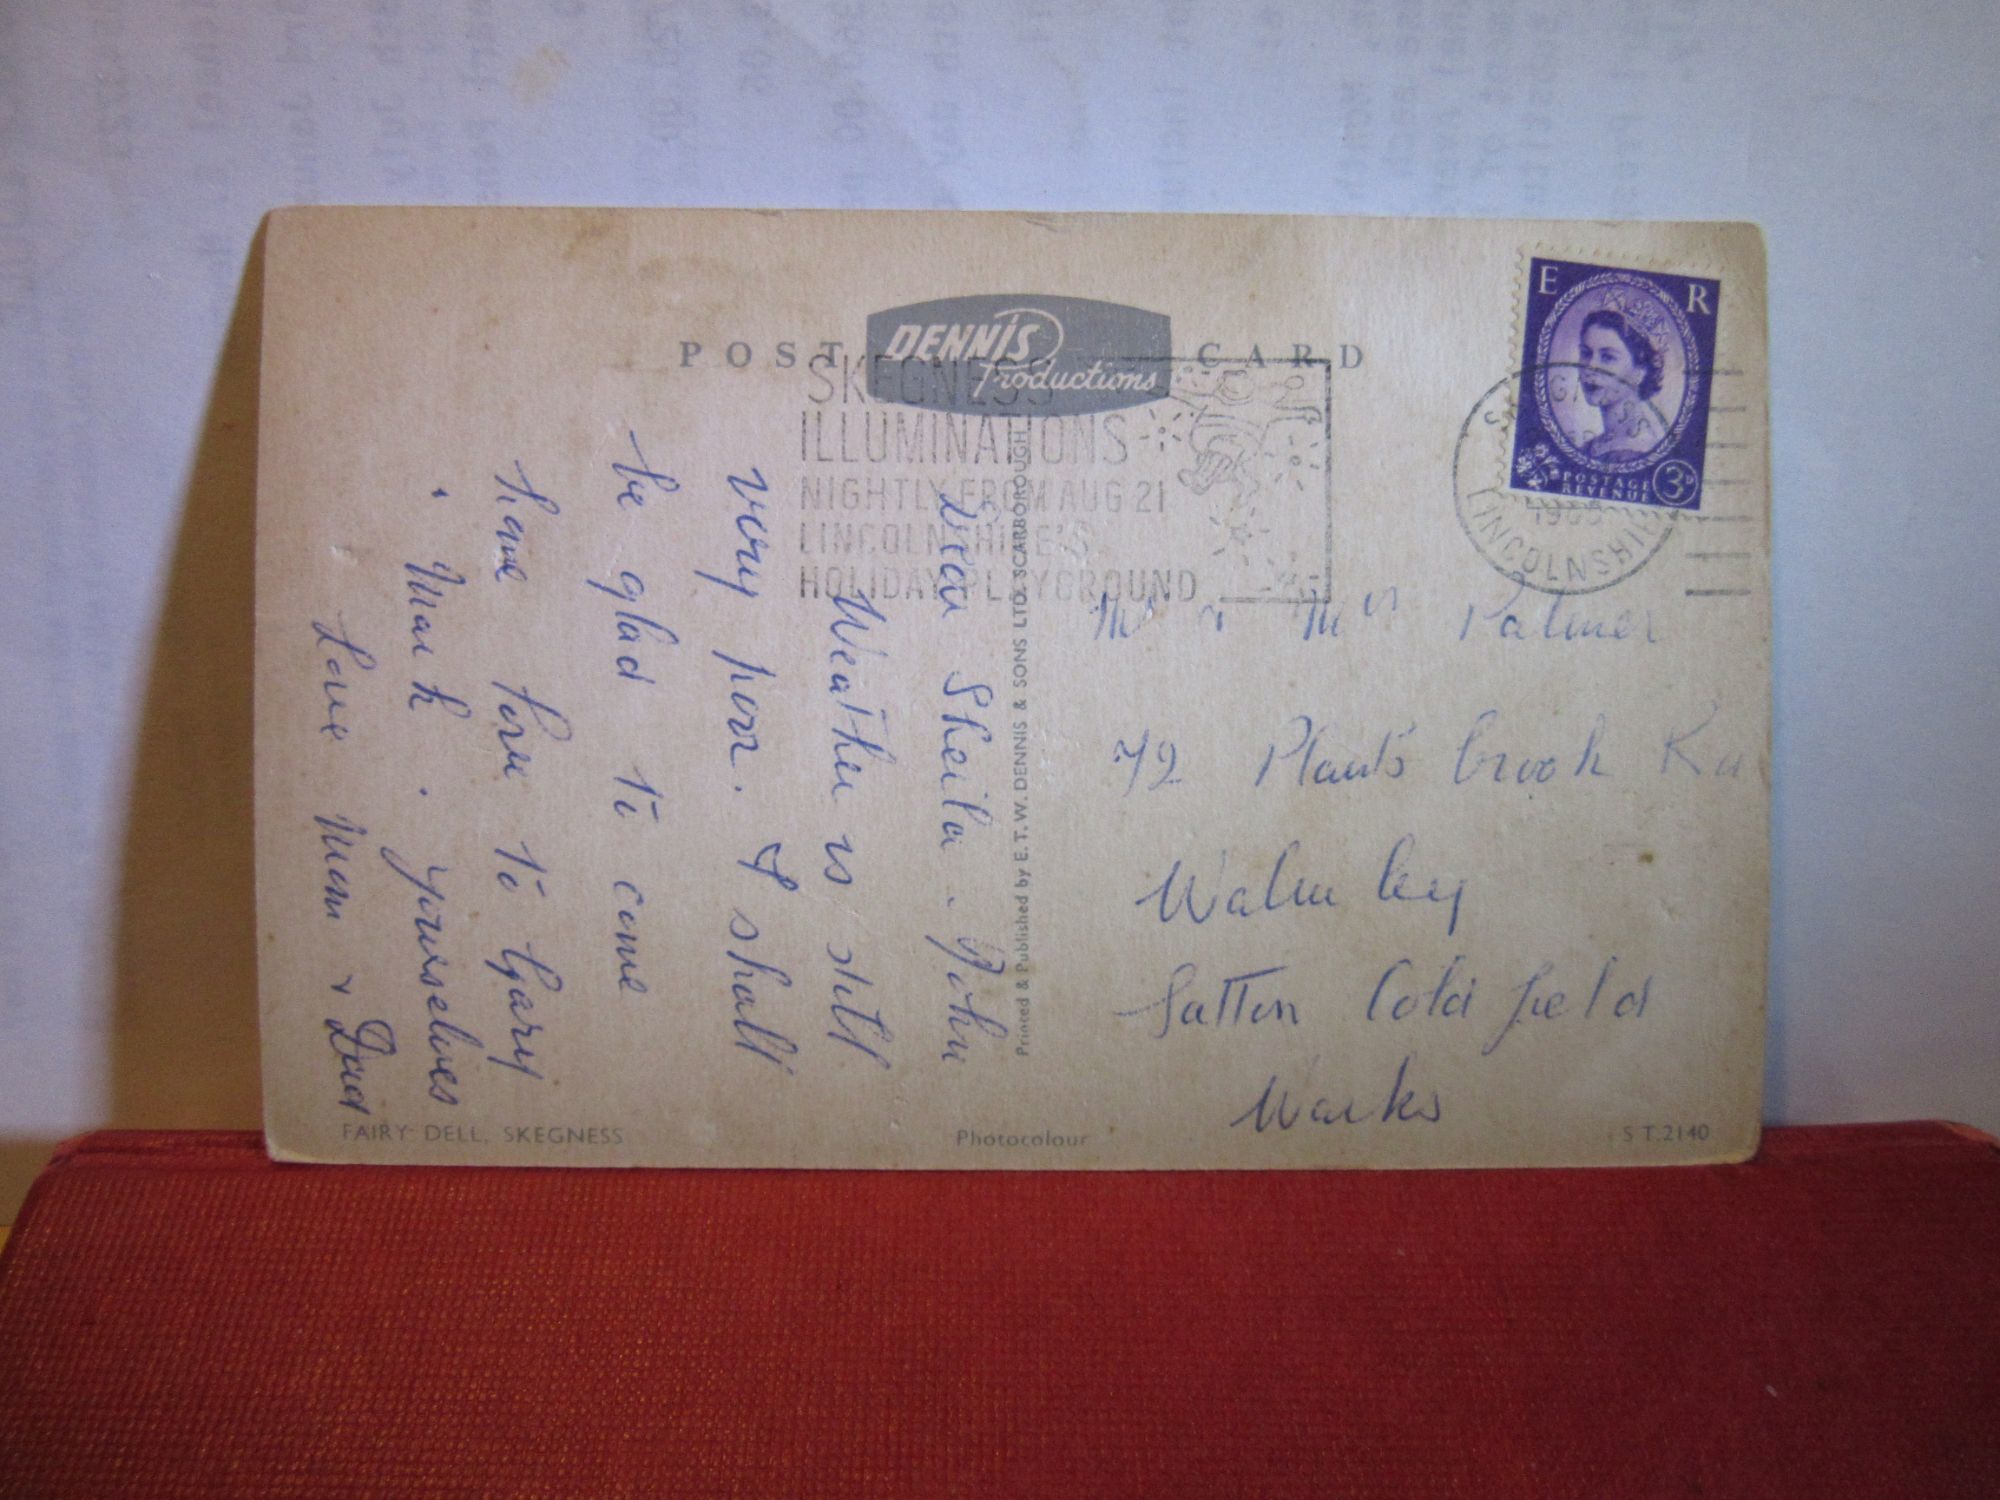 POST CARD
DENNIS
Productions
SKEGNESS
ILLUMINATIONS
NIGHTLY FROM AUG 21
LINCOLNSHIRE'S
HOLIDAY PLAYGROUND
E R
POSTAGE
REVENUE
3D
SKEGNESS
LINCOLNSHIRE
Dear Sheila. John
Weather is still
very poor. I shall
be glad to come
home love to Gary
. Mark. yourselves
Love Mum + Dad
Printed & Published by E. T. W. DENNIS & SONS LTD. SCARBOROUGH
Mr & Mrs Palmer
72 Plants brook Rd
Walmley
Sutton Coldfield
Warks
FAIRY DELL, SKEGNESS
Photocolour
S T.2140